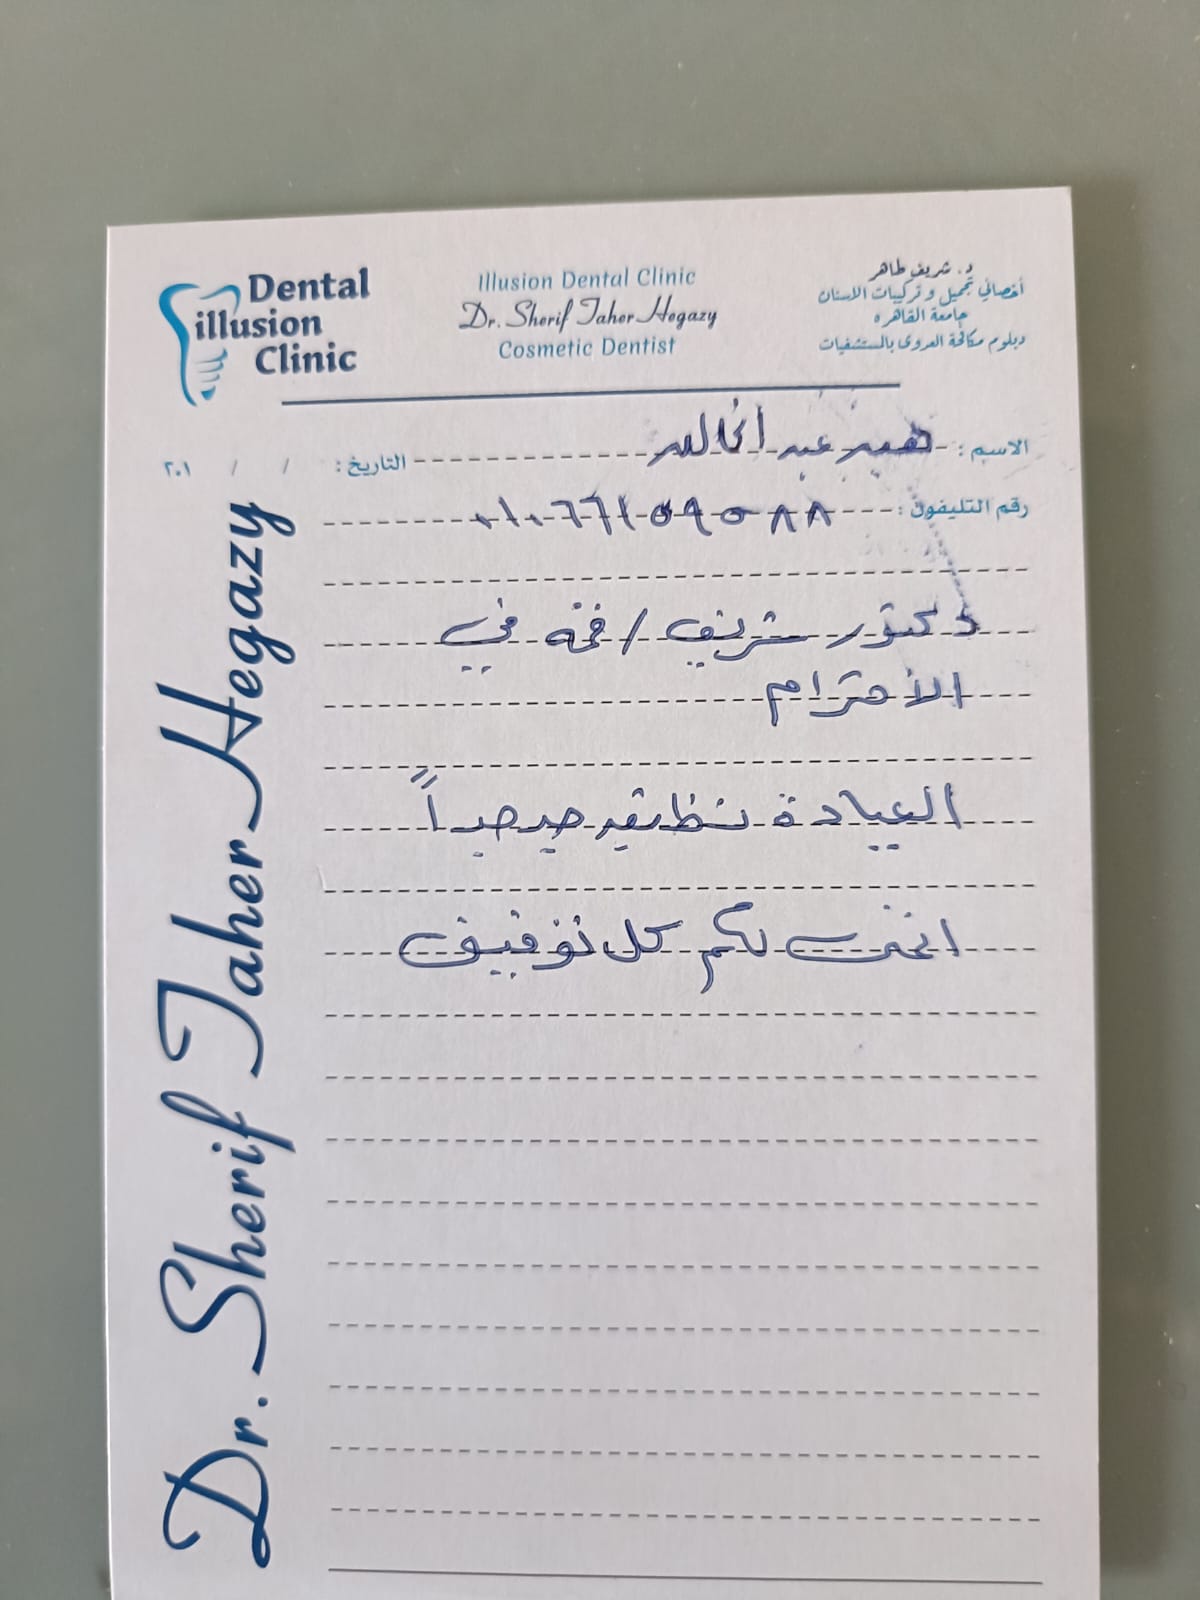 Dental
illusion
Clinic
Illusion Dental Clinic
Dr. Sherif Taher Hegazy
Cosmetic Dentist
د. شريف طاهر
أخصائي تجميل و تركيبات الاسنان
جامعة القاهره
دبلوم مكافحة العدوى بالمستشفيات
الاسم : عبد
التاريخ : / / ٢٠١
رقم التليفون : ٠١٠٦٦١٥٩٥٨٨
دكتور شريف / قمة في
الأحترام
العيادة نظيفه جداً
اتمنى لكم كل توفيق
Dr. Sherif Taher Hegazy